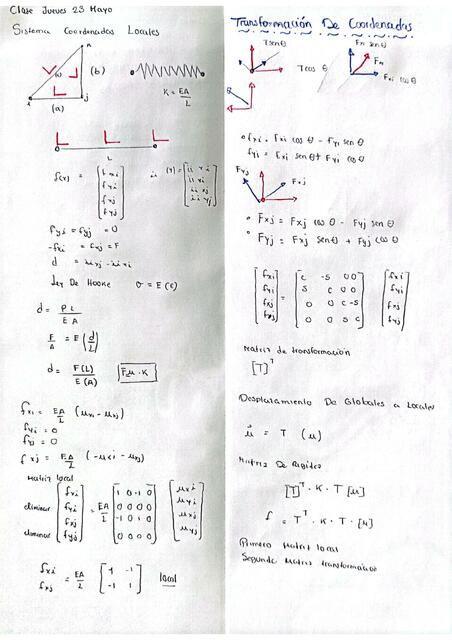 Clase Jueves 23 Mayo
Sistema Coordenadas Locales
(b)
(a)
K = EA/L
L
f(x) = [fxi fyi fxj fyj]
fyi = fyj = 0
-fxi = fxj = F
Ley De Hooke σ = E (ε)
d = PL / EA
F/A = E (d/L)
d = F(L) / E(A)
fxi = EA/L (μxi - μxj)
fyi = 0
fyj = 0
fxj = EA/L (-μxi - μxj)
Matriz local
eliminar
eliminar
[fxi fyi fxj fyj] = EA/L [1 0 -1 0 0 0 0 0 -1 0 1 0 0 0 0 0] [μxi μyi μxj μyj]
fxi fxj = EA/L [1 -1 -1 1] local
Transformación De Coordenadas
T sen θ
T cos θ
Fn sen θ
Fn
Fxi cos θ
θ
fxi = Fxi cos θ - Fyi sen θ
fyi = Fxi sen θ + Fyi cos θ
Fyj
Fxj
Fxj = Fxj cos θ - Fyj sen θ
Fyj = Fxj sen θ + Fyj cos θ
[fxi fyi fxj fxj] = [c -s 0 0 s c 0 0 0 0 c -s 0 0 s c] [fxi fyi fxj fyj]
Matriz de transformación
[T]ᵀ
Desplazamiento De Globales a Locales
μ = T (μ)
Matriz De Rigidez
[T]ᵀ · K · T [μ]
f = Tᵀ · K · T · [μ]
Primero Matriz local
Segundo Matriz transformación